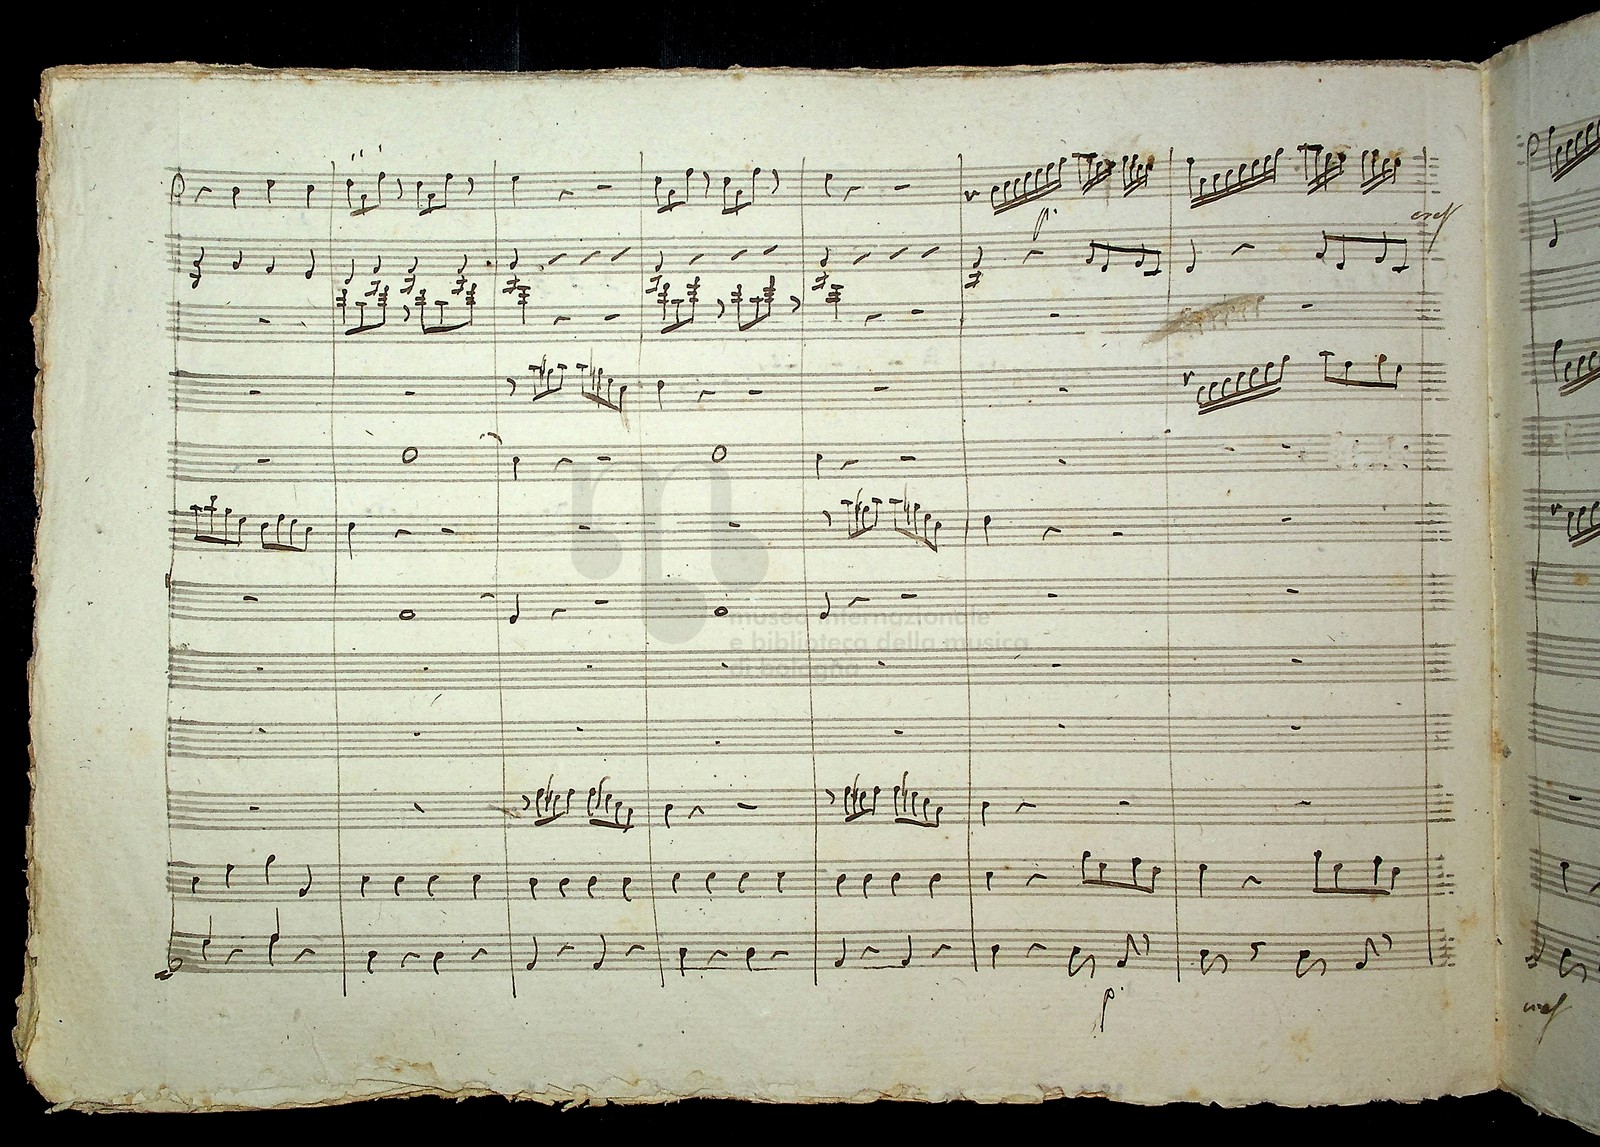 p.
cresc
museo internazionale
e biblioteca della musica
di bologna
p.
cresc